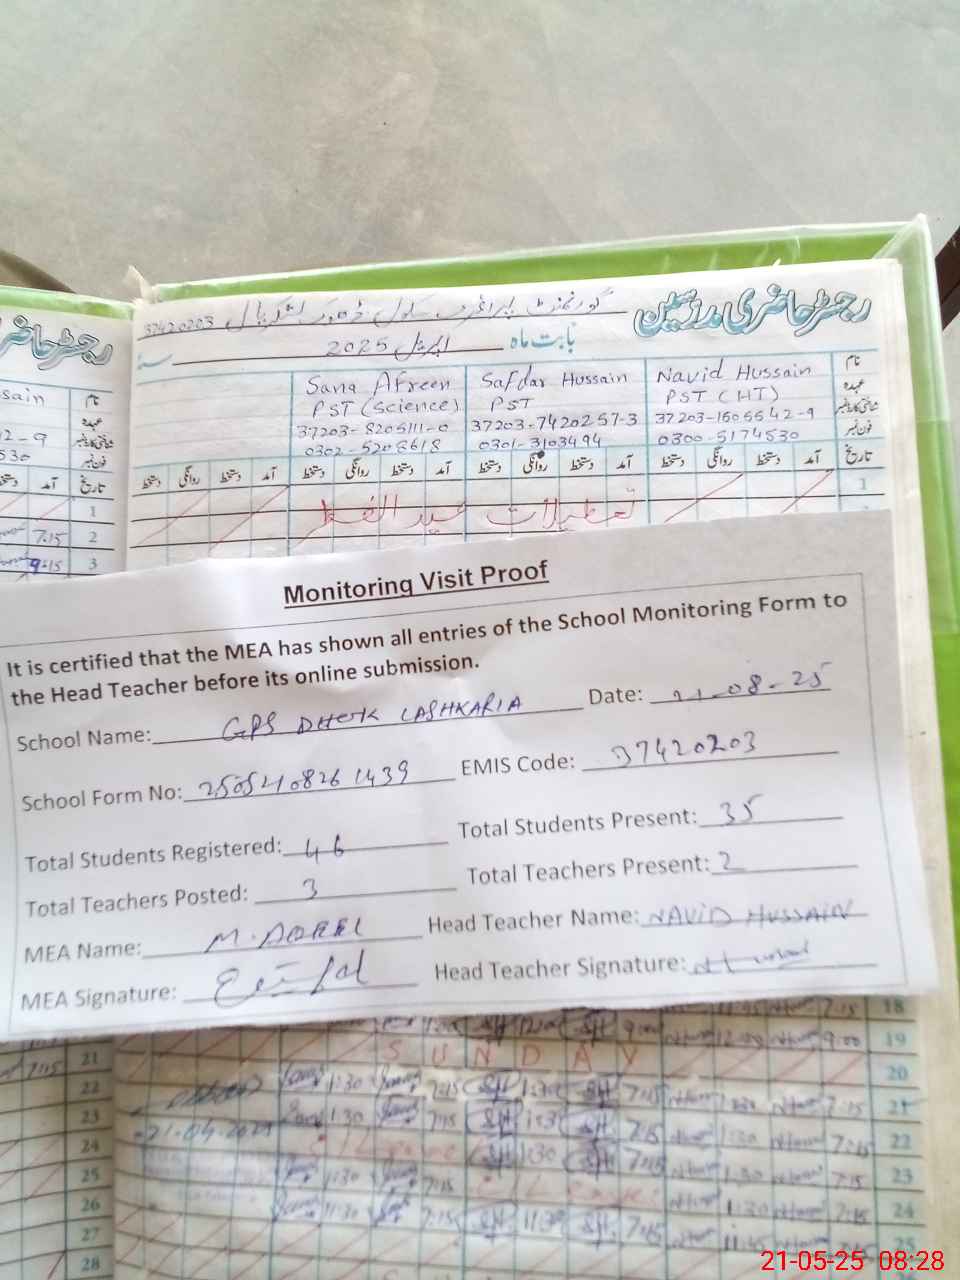 رجسٹر حاضری مدرسین
گورنمنٹ پرائمری سکول ڈھوک لشکریال 37420203
بابت ماہ اپریل 2025
نام Navid Hussain Safdar Hussain Sana Afreen
عہدہ PST (HT) PST PST (Science)
شناختی کارڈ نمبر 37203-1605542-9 37203-7420257-3 37203-8205111-0
فون نمبر 0300-5174530 0301-3103494 0302-5208618
تاریخ آمد دستخط روانگی دستخط آمد دستخط روانگی دستخط آمد دستخط روانگی دستخط
1
تعطیلات عید الفطر
رجسٹر حا
نام
عہدہ
شناختی کارڈ نمبر
فون نمبر
تاریخ آمد
1
2 7:15
3 9:15
Monitoring Visit Proof
It is certified that the MEA has shown all entries of the School Monitoring Form to
the Head Teacher before its online submission.
School Name: GPS DHOK LASHKARIA Date: 21-08-25
School Form No: 25052108261439 EMIS Code: 37420203
Total Students Registered: 46 Total Students Present: 35
Total Teachers Posted: 3 Total Teachers Present: 2
MEA Name: M. AQEEL Head Teacher Name: NAVID HUSSAIN
MEA Signature: Head Teacher Signature:
18 7:15
19 9:00 12:00 9:00
20 SUNDAY
21 7:15 1:30 7:15 1:30 7:15 1:30
22 7:15 1:30 7:15 1:30 7:15 1:30
23 7:15 1:30 7:15 1:30
24 7:15 1:30 7:15
25 11:45 7:15 11:30 7:15 11:30
21 7:15
22
23
24
25
26
27
28
21-05-25 08:28